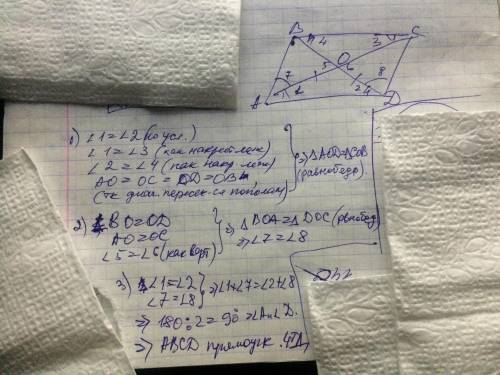 B 4 3 C
O
7 5 6 8
A 1 2 4 D
1) ∠1=∠2 (по усл.)
∠1=∠3 (как накрест леж)
∠2=∠4 (как накр леж)
AO=OC=OD=OB
(тк диаг. пересек-ся пополам)
⇒ △AOD=△COB
(равнобедр)
2) BO=OD
AO=OC
∠5=∠6 (как верт)
⇒ △BOA=△DOC (рвнобед)
⇒ ∠7=∠8
3) ∠1=∠2
∠7=∠8
⇒ ∠1+∠7=∠2+∠8
⇒ 180:2=90=∠A и ∠D.
⇒ ABCD прямоуг. ЧТД